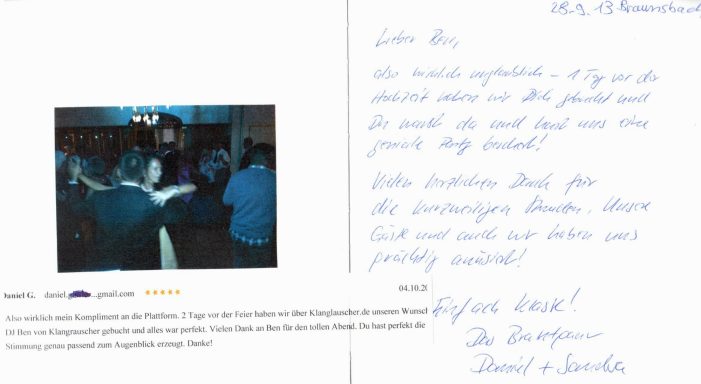 28.9.13 Braunsbach
Lieber Ben,
also wirklich unglaublich – 1 Tag vor der
Hochzeit haben wir Dich gebucht und
Du warst da und hast uns eine
geniale Party beschert!
Vielen herzlichen Dank für
die kurzweiligen Stunden. Unsere
Gäste und auch wir haben uns
prächtig amüsiert!
Einfach klasse!
Das Brautpaar
Daniel + Sandra
Daniel G. daniel.g...gmail.com ★★★★★ 04.10.20
Also wirklich mein Kompliment an die Plattform. 2 Tage vor der Feier haben wir über Klanglauscher.de unseren Wunsch
DJ Ben von Klangrauscher gebucht und alles war perfekt. Vielen Dank an Ben für den tollen Abend. Du hast perfekt die
Stimmung genau passend zum Augenblick erzeugt. Danke!